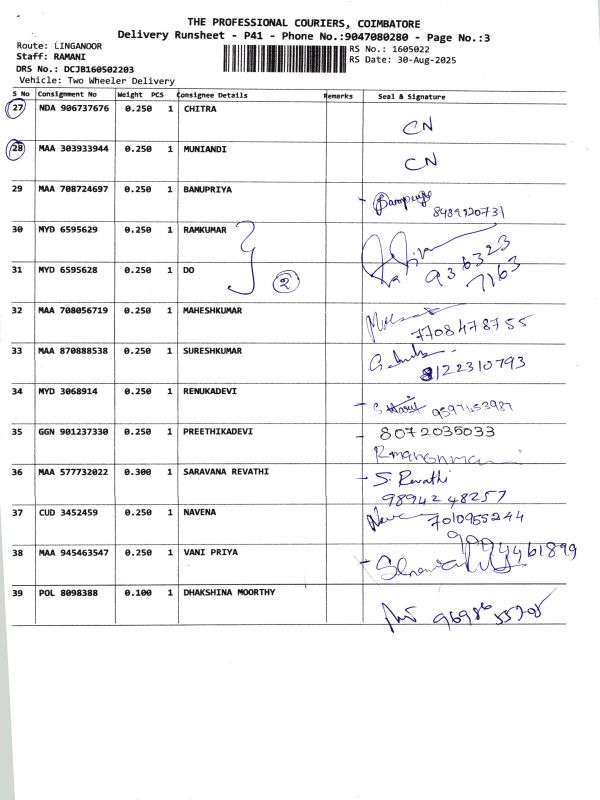 THE PROFESSIONAL COURIERS, COIMBATORE
Delivery Runsheet - P41 - Phone No.:9047080280 - Page No.:3
Route: LINGANOOR RS No.: 1605022
Staff: RAMANI RS Date: 30-Aug-2025
DRS No.: DCJB160502203
Vehicle: Two Wheeler Delivery
S No Consignment No Weight PCS Consignee Details Remarks Seal & Signature
27 NDA 906737676 0.250 1 CHITRA CN
28 MAA 303933944 0.250 1 MUNIANDI CN
29 MAA 708724697 0.250 1 BANUPRIYA
8489920731
30 MYD 6595629 0.250 1 RAMKUMAR 936323
31 MYD 6595628 0.250 1 DO 2 7163
32 MAA 708056719 0.250 1 MAHESHKUMAR
7708478755
33 MAA 870888538 0.250 1 SURESHKUMAR
8122310793
34 MYD 3068914 0.250 1 RENUKADEVI
9597653987
35 GGN 901237330 0.250 1 PREETHIKADEVI 8072035033
36 MAA 577732022 0.300 1 SARAVANA REVATHI S. Revathi
9894248257
37 CUD 3452459 0.250 1 NAVENA
7010955244
38 MAA 945463547 0.250 1 VANI PRIYA
39 POL 8098388 0.100 1 DHAKSHINA MOORTHY